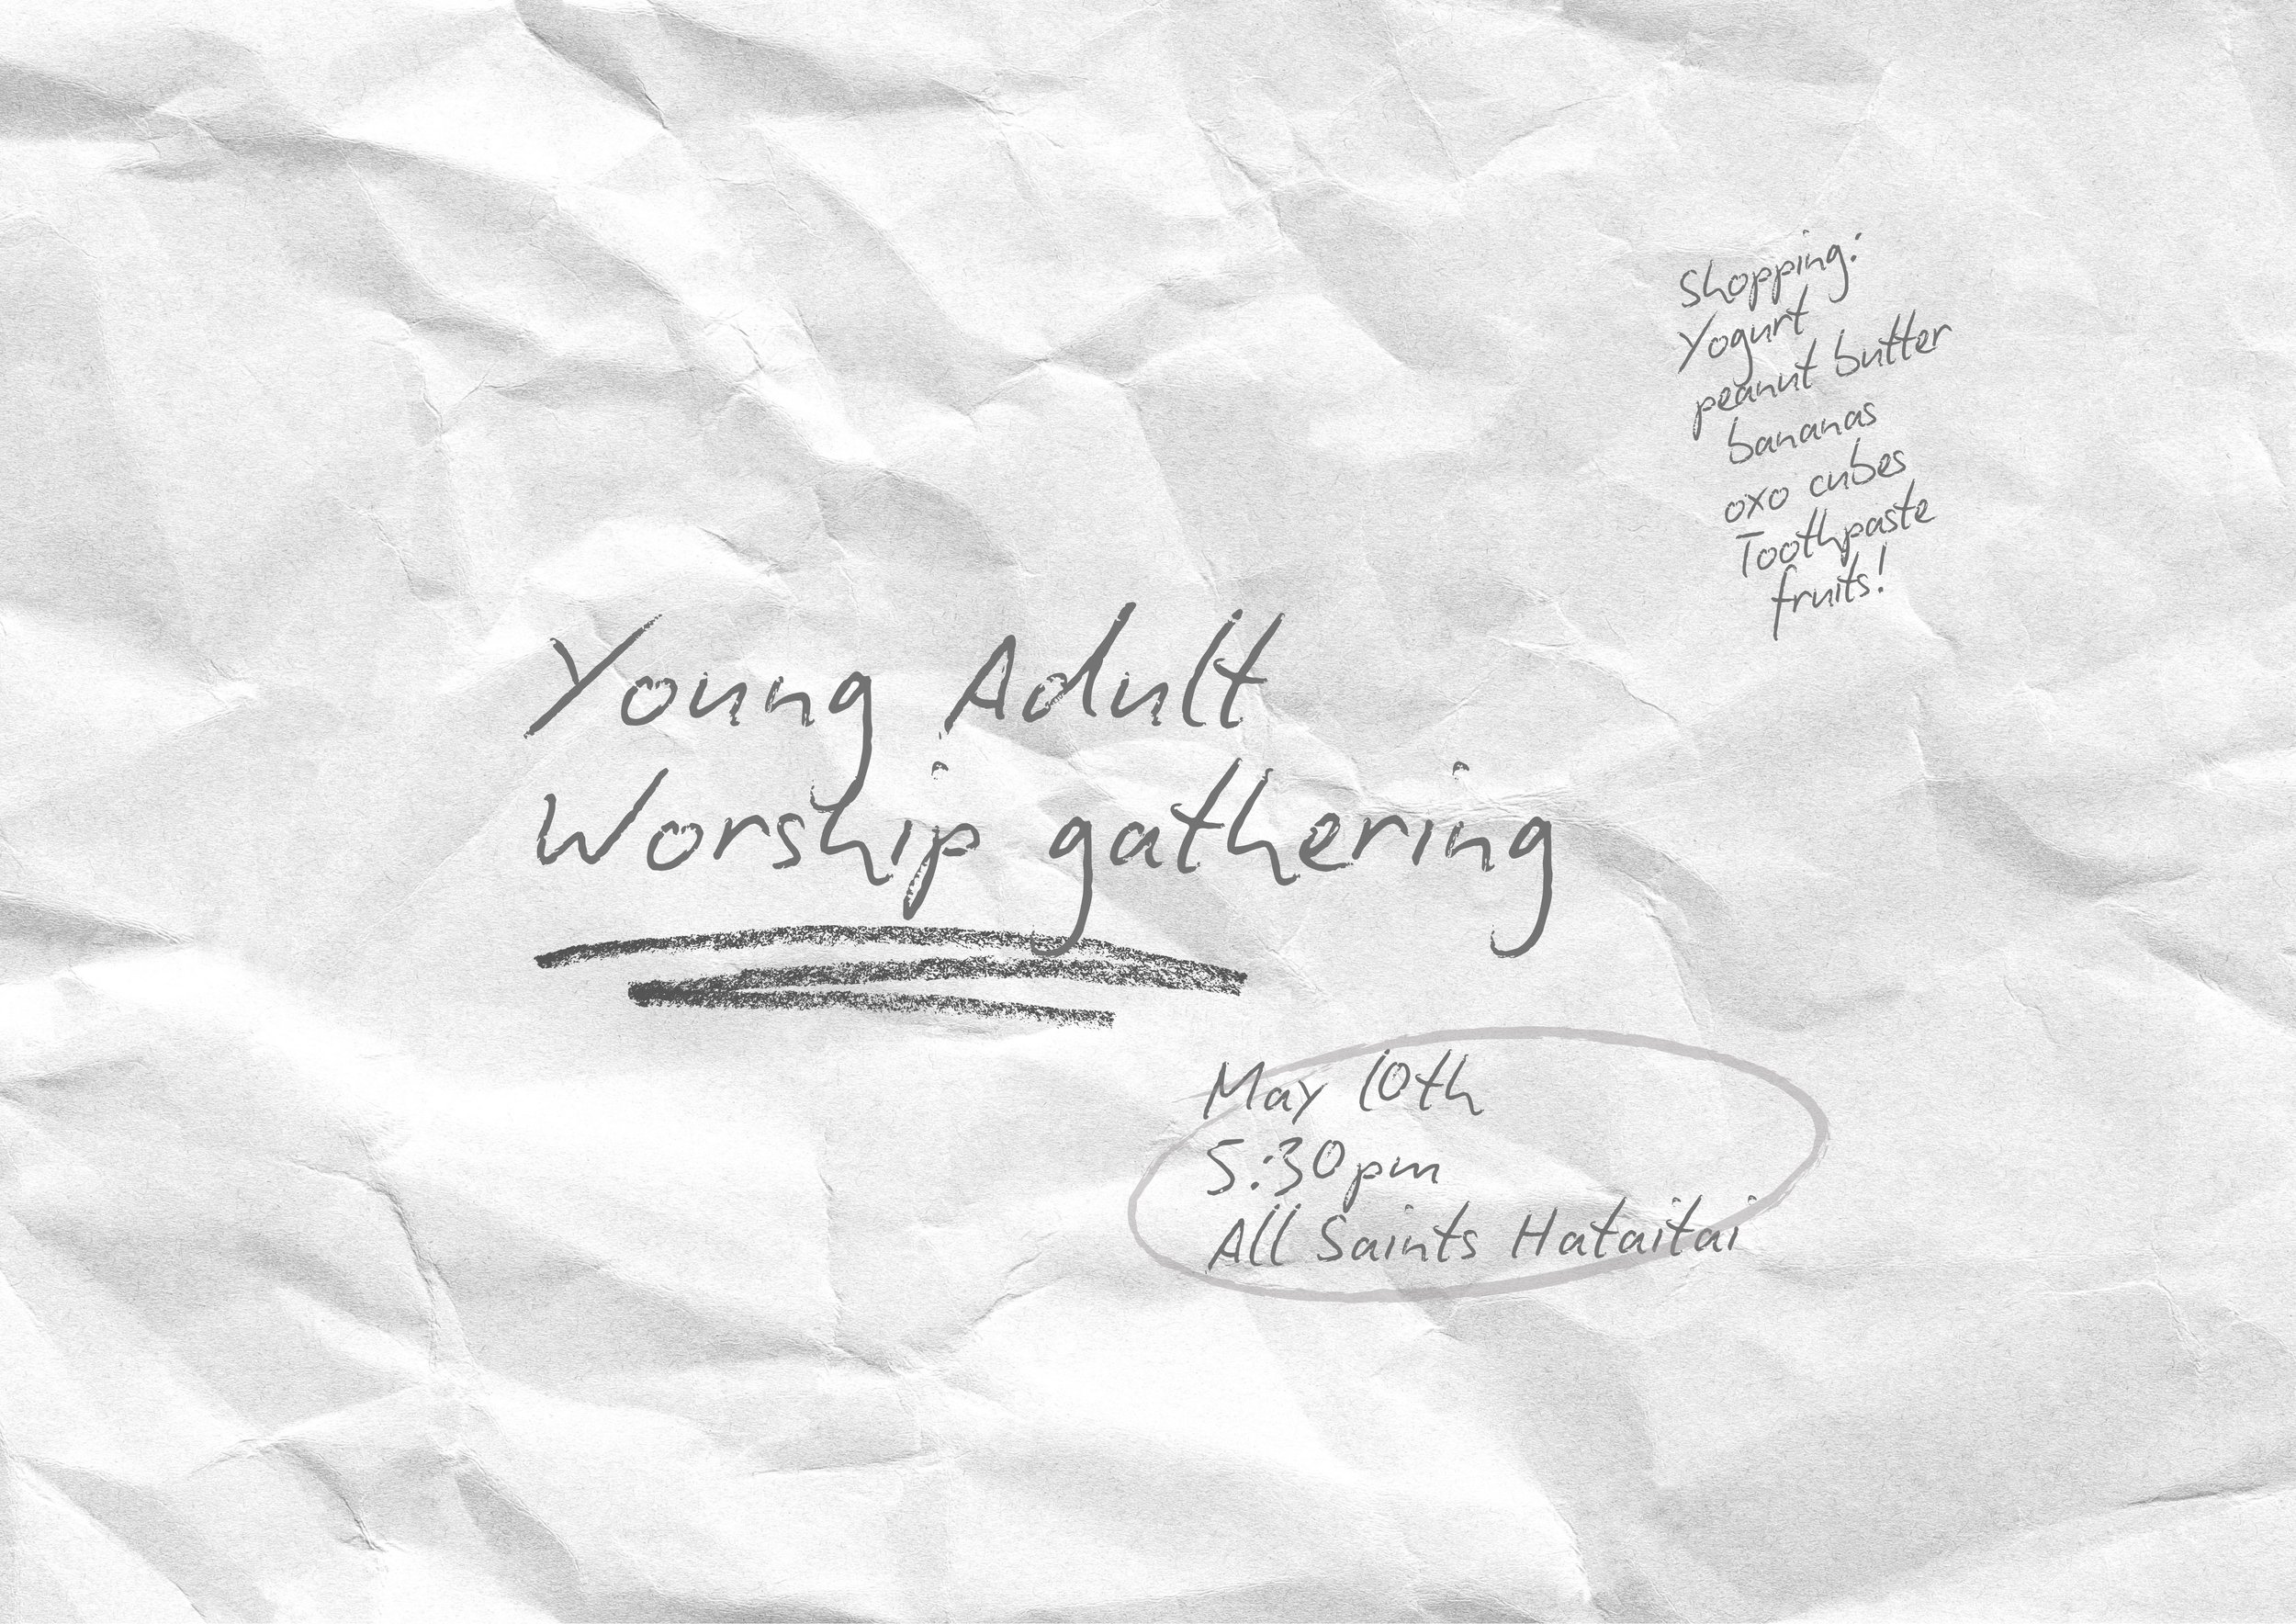 Shopping:
Yogurt
peanut butter
bananas
oxo cubes
Toothpaste
fruits!
Young Adult
Worship gathering
May 10th
5:30pm
All Saints Hataitai